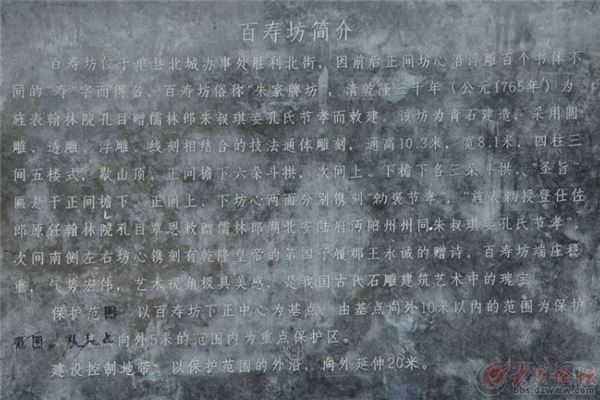 百寿坊简介
百寿坊位于单县北城办事处胜利北街，因前后正间坊心沿浮雕百个书体不
同的“寿”字而得名。百寿坊俗称“朱家牌坊”，清乾隆三十年（公元1765年）为
旌表翰林院孔目赠儒林郎朱叔琪妾孔氏节孝而敕建。该坊为青石建造，采用圆
雕、透雕、浮雕、线刻相结合的技法通体雕刻，通高10.3米，宽8.1米，四柱三
间五楼式，歇山顶。正间檐下六朵斗拱，次间上、下檐下各三朵斗拱。“圣旨”
匾悬于正间檐下。正间上、下坊心两面分别镌刻“勅褒节孝”、“旌表勅授登仕佐
郎原任翰林院孔目覃恩敕赠儒林郎湖北安陆府沔阳州州同朱叔琪妾孔氏节孝”。
次间南侧左右坊心镌刻有乾隆皇帝的第四子履郡王永诚的赠诗。百寿坊端庄稳
重，气势宏伟，艺术视角极具美感，是我国古代石雕建筑艺术中的瑰宝。
保护范围：以百寿坊下正中心为基点，由基点向外10米以内的范围为保护
范围。从基点向外5米的范围内为重点保护区。
建设控制地带：以保护范围的外沿，向外延伸20米。
大众论坛
bbs.dzwww.com